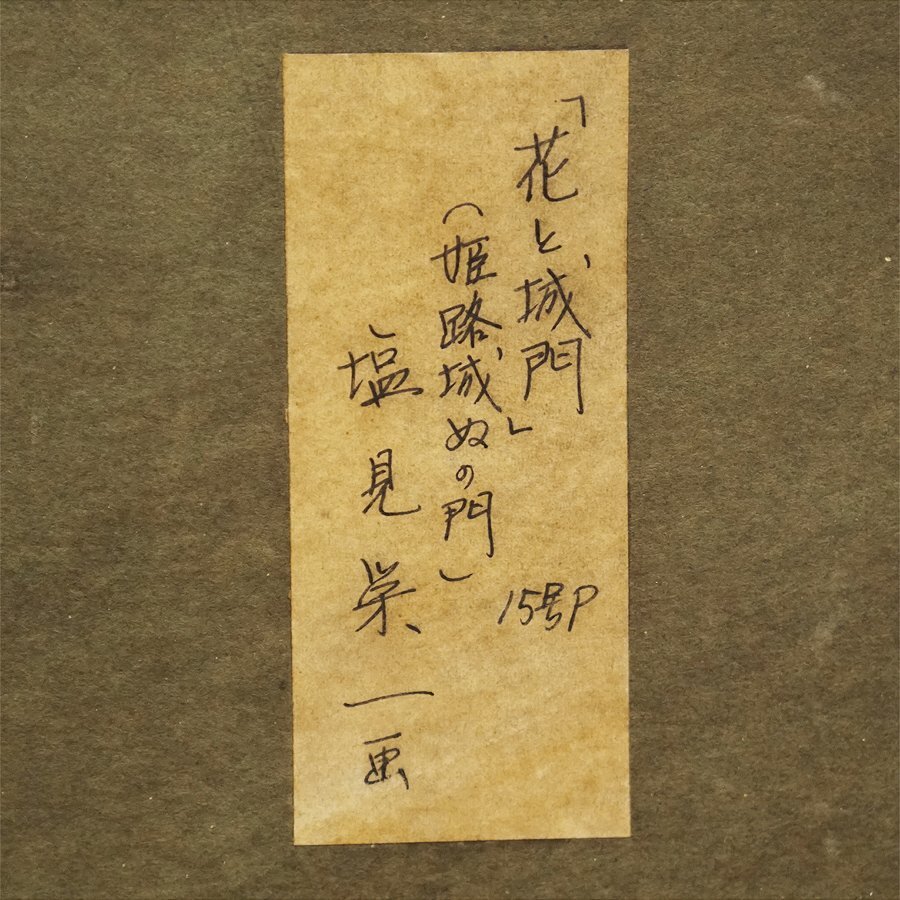 「花と城門」
15号P
(姫路城ぬの門)
塩見栄一画